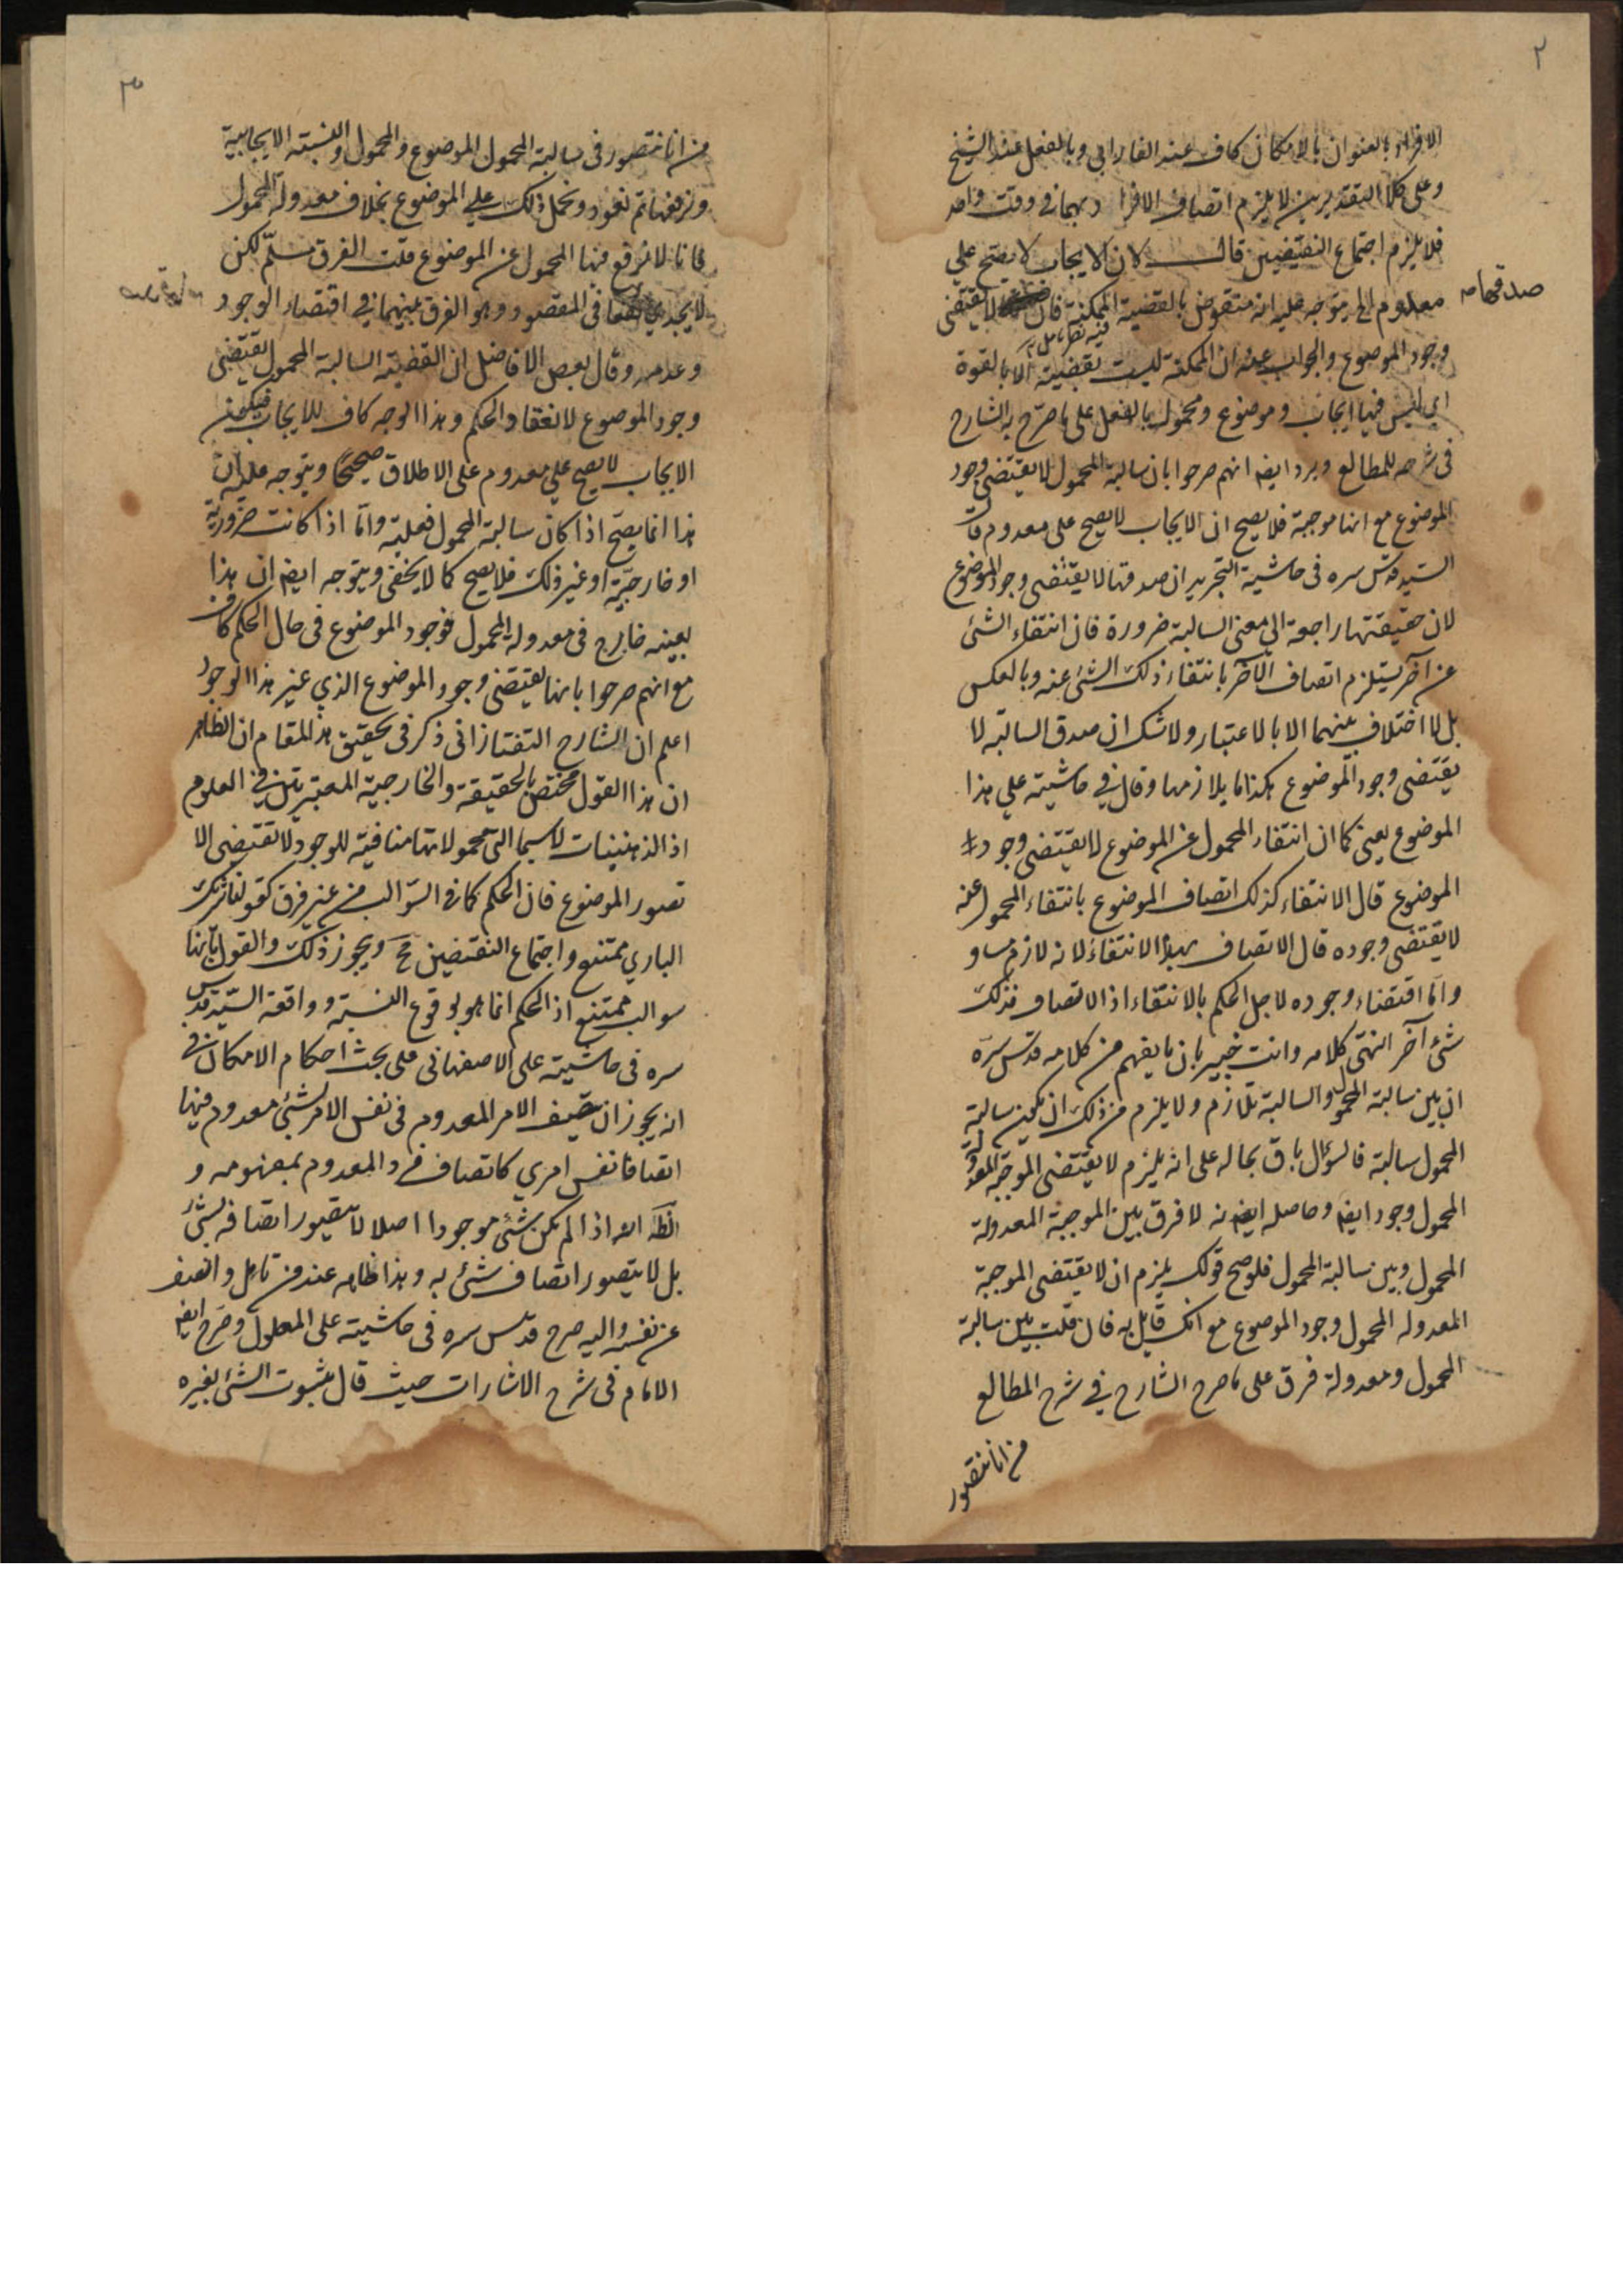 ٢
الافراد بالعنوان بالامكان كاف عند الفارابي وبالفعل عند الشيخ
وعلى كلا التقديرين لا يلزم اتصاف الافراد بهما في وقت واحد
فلا يلزم اجتماع النقيضين قال لان الايجاب لا يصح علي
معدوم الخ يتوجه عليه انه منقوض بالقضية الممكنة فان لا يقتضى
صدقهما صه
فيه تأمل
وجود الموضوع والجواب عنه ان الممكنة ليست بقضية الا بالقوة
اى ليس فيها ايجاب وموضوع ومحمول بالفعل على ما صرح به الشارح
فى شرحه للمطالع ويرد ايضا انهم صرحوا بان سالبة المحمول لا يقتضى وجود
الموضوع مع انها موجبة فلا يصح ان الايجاب لا يصح على معدوم قال
السيد قدس سره فى حاشية التجريد ان صدقها لا يقتضى وجود الموضوع
لان حقيقتها راجعة الى معنى السالبة ضرورة فان انتفاء الشئ
عن آخر يستلزم اتصاف الآخر بانتفاء ذلك الشئ عنه وبالعكس
بل لا اختلاف بينهما الا بالاعتبار ولا شك ان صدق السالبة لا
يقتضى وجود الموضوع هكذا ما يلازمها وقال في حاشيته علي هذا
الموضوع يعنى كما ان انتفاء المحمول عن الموضوع لا يقتضى وجود
الموضوع قال الانتفاء كذلك اتصاف الموضوع بانتفاء المحمول عنه
لا يقتضى وجوده قال الاتصاف بهذا الانتفاء لانه لازم مساو
واما اقتضاء وجوده لاجل الحكم بالانتفاء اذ الاتصاف فذلك
شئ آخر انتهى كلامه وانت خبير بان ما يفهم من كلامه قدس سره
ان بين سالبة المحمول والسالبة تلازم ولا يلزم من ذلك ان يكون سالبة
المحمول سالبة فالسؤال باق بحاله على انه يلزم لا يقتضى الموجبة المعدولة
المحمول وجودا ايضا وحاصله ايضا انه لا فرق بين الموجبة المعدولة
المحمول وبين سالبة المحمول فلو صح قولك يلزم ان لا يقتضى الموجبة
المعدولة المحمول وجود الموضوع مع انك قايل به فان قلت بين سالبة
المحمول ومعدولة فرق على ما صرح الشارح في شرح المطالع
من انا نتصور
٣
من انا نتصور فى سالبة المحمول الموضوع والمحمول والنسبة الايجابية
ونرفعها ثم نعود ونحمل ذلك علي الموضوع بخلاف معدولة المحمول
فانا لا نرفع فيها المحمول عن الموضوع قلت الفرق مسلم لكن
لا يجدي نفعا فى المقصود وهو الفرق بينهما في اقتضاء الوجود
وعدمه وقال بعض الافاضل ان القضية السالبة المحمول يقتضى
وجود الموضوع لانعقاد الحكم وهذا الوجه كاف للايجاب فيكون
الايجاب لا يصح علي معدوم على الاطلاق صحيحا ويتوجه عليه ان
هذا انما يصح اذا كان سالبة المحمول فعلية واما اذا كانت ضرورية
او خارجية او غير ذلك فلا يصح كما لا يخفى ويتوجه ايضا ان هذا
بعينه خارج فى معدولة المحمول فوجود الموضوع فى حال الحكم كاف
مع انهم صرحوا بانها يقتضى وجود الموضوع الذي غير هذا الوجود
اعلم ان الشارح التفتازانى ذكر فى تحقيق هذا المقام ان الظاهر
ان هذا القول مختص بالحقيقة والخارجية المعتبرتين في العلوم
اذ الذهنيات لا سيما التى محمولاتها منافية للوجود لا تقتضى الا
تصور الموضوع فان الحكم كما فى السوالب من غير فرق كقولنا شريك
الباري ممتنع واجتماع النقيضين مح ويجوز ذلك والقول بانها
سوالب ممتنع اذ الحكم انما هو بوقوع النسبة وواقعة السيد قدس
سره فى حاشيته على الاصفهانى على بحث احكام الامكان في
انه يجوز ان يتصف الامر المعدوم فى نفس الامر لشئ معدوم فيها
اتصافا نفس امري كاتصاف فرد المعدوم بمفهومه و
الظ انه اذا لم يكن شئ موجودا اصلا لا يتصور اتصافه بشئ
بل لا يتصور اتصاف شئ به وهذا ظاهر عند من تامل وانصف
عن نفسه واليه صرح قدس سره فى حاشيته على المطول وصرح ايضا
الامام فى شرح الاشارات حيث قال ثبوت الشئ لغيره